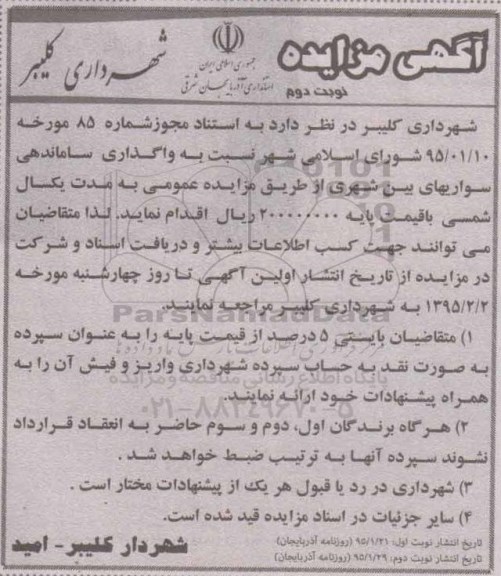 آگهی مزایده
نوبت دوم
جمهوری اسلامی ایران
استانداری آذربایجان شرقی
شهرداری کلیبر
شهرداری کلیبر در نظر دارد به استناد مجوزشماره ۸۵ مورخه
۹۵/۰۱/۱۰ شورای اسلامی شهر نسبت به واگذاری ساماندهی
سواریهای بین شهری از طریق مزایده عمومی به مدت یکسال
شمسی باقیمت پایه ۲۰۰۰۰۰۰۰۰ ریال اقدام نماید. لذا متقاضیان
می توانند جهت کسب اطلاعات بیشتر و دریافت اسناد و شرکت
در مزایده از تاریخ انتشار اولین آگهی تا روز چهارشنبه مورخه
۱۳۹۵/۲/۲ به شهرداری کلیبر مراجعه نمایند.
۱) متقاضیان بایستی ۵ درصد از قیمت پایه را به عنوان سپرده
به صورت نقد به حساب سپرده شهرداری واریز و فیش آن را به
همراه پیشنهادات خود ارائه نمایند.
۲) هرگاه برندگان اول، دوم و سوم حاضر به انعقاد قرارداد
نشوند سپرده آنها به ترتیب ضبط خواهد شد .
۳) شهرداری در رد یا قبول هر یک از پیشنهادات مختار است .
۴) سایر جزئیات در اسناد مزایده قید شده است.
تاریخ انتشار نوبت اول: ۹۵/۱/۲۱ (روزنامه آذربایجان)
تاریخ انتشار نوبت دوم: ۹۵/۱/۲۹ (روزنامه آذربایجان)
شهردار کلیبر- امید
ParsNamadData
پایگاه اطلاع رسانی مناقصه و مزایده
۰۲۱-۸۸۳۴۹۶۷۰-۵